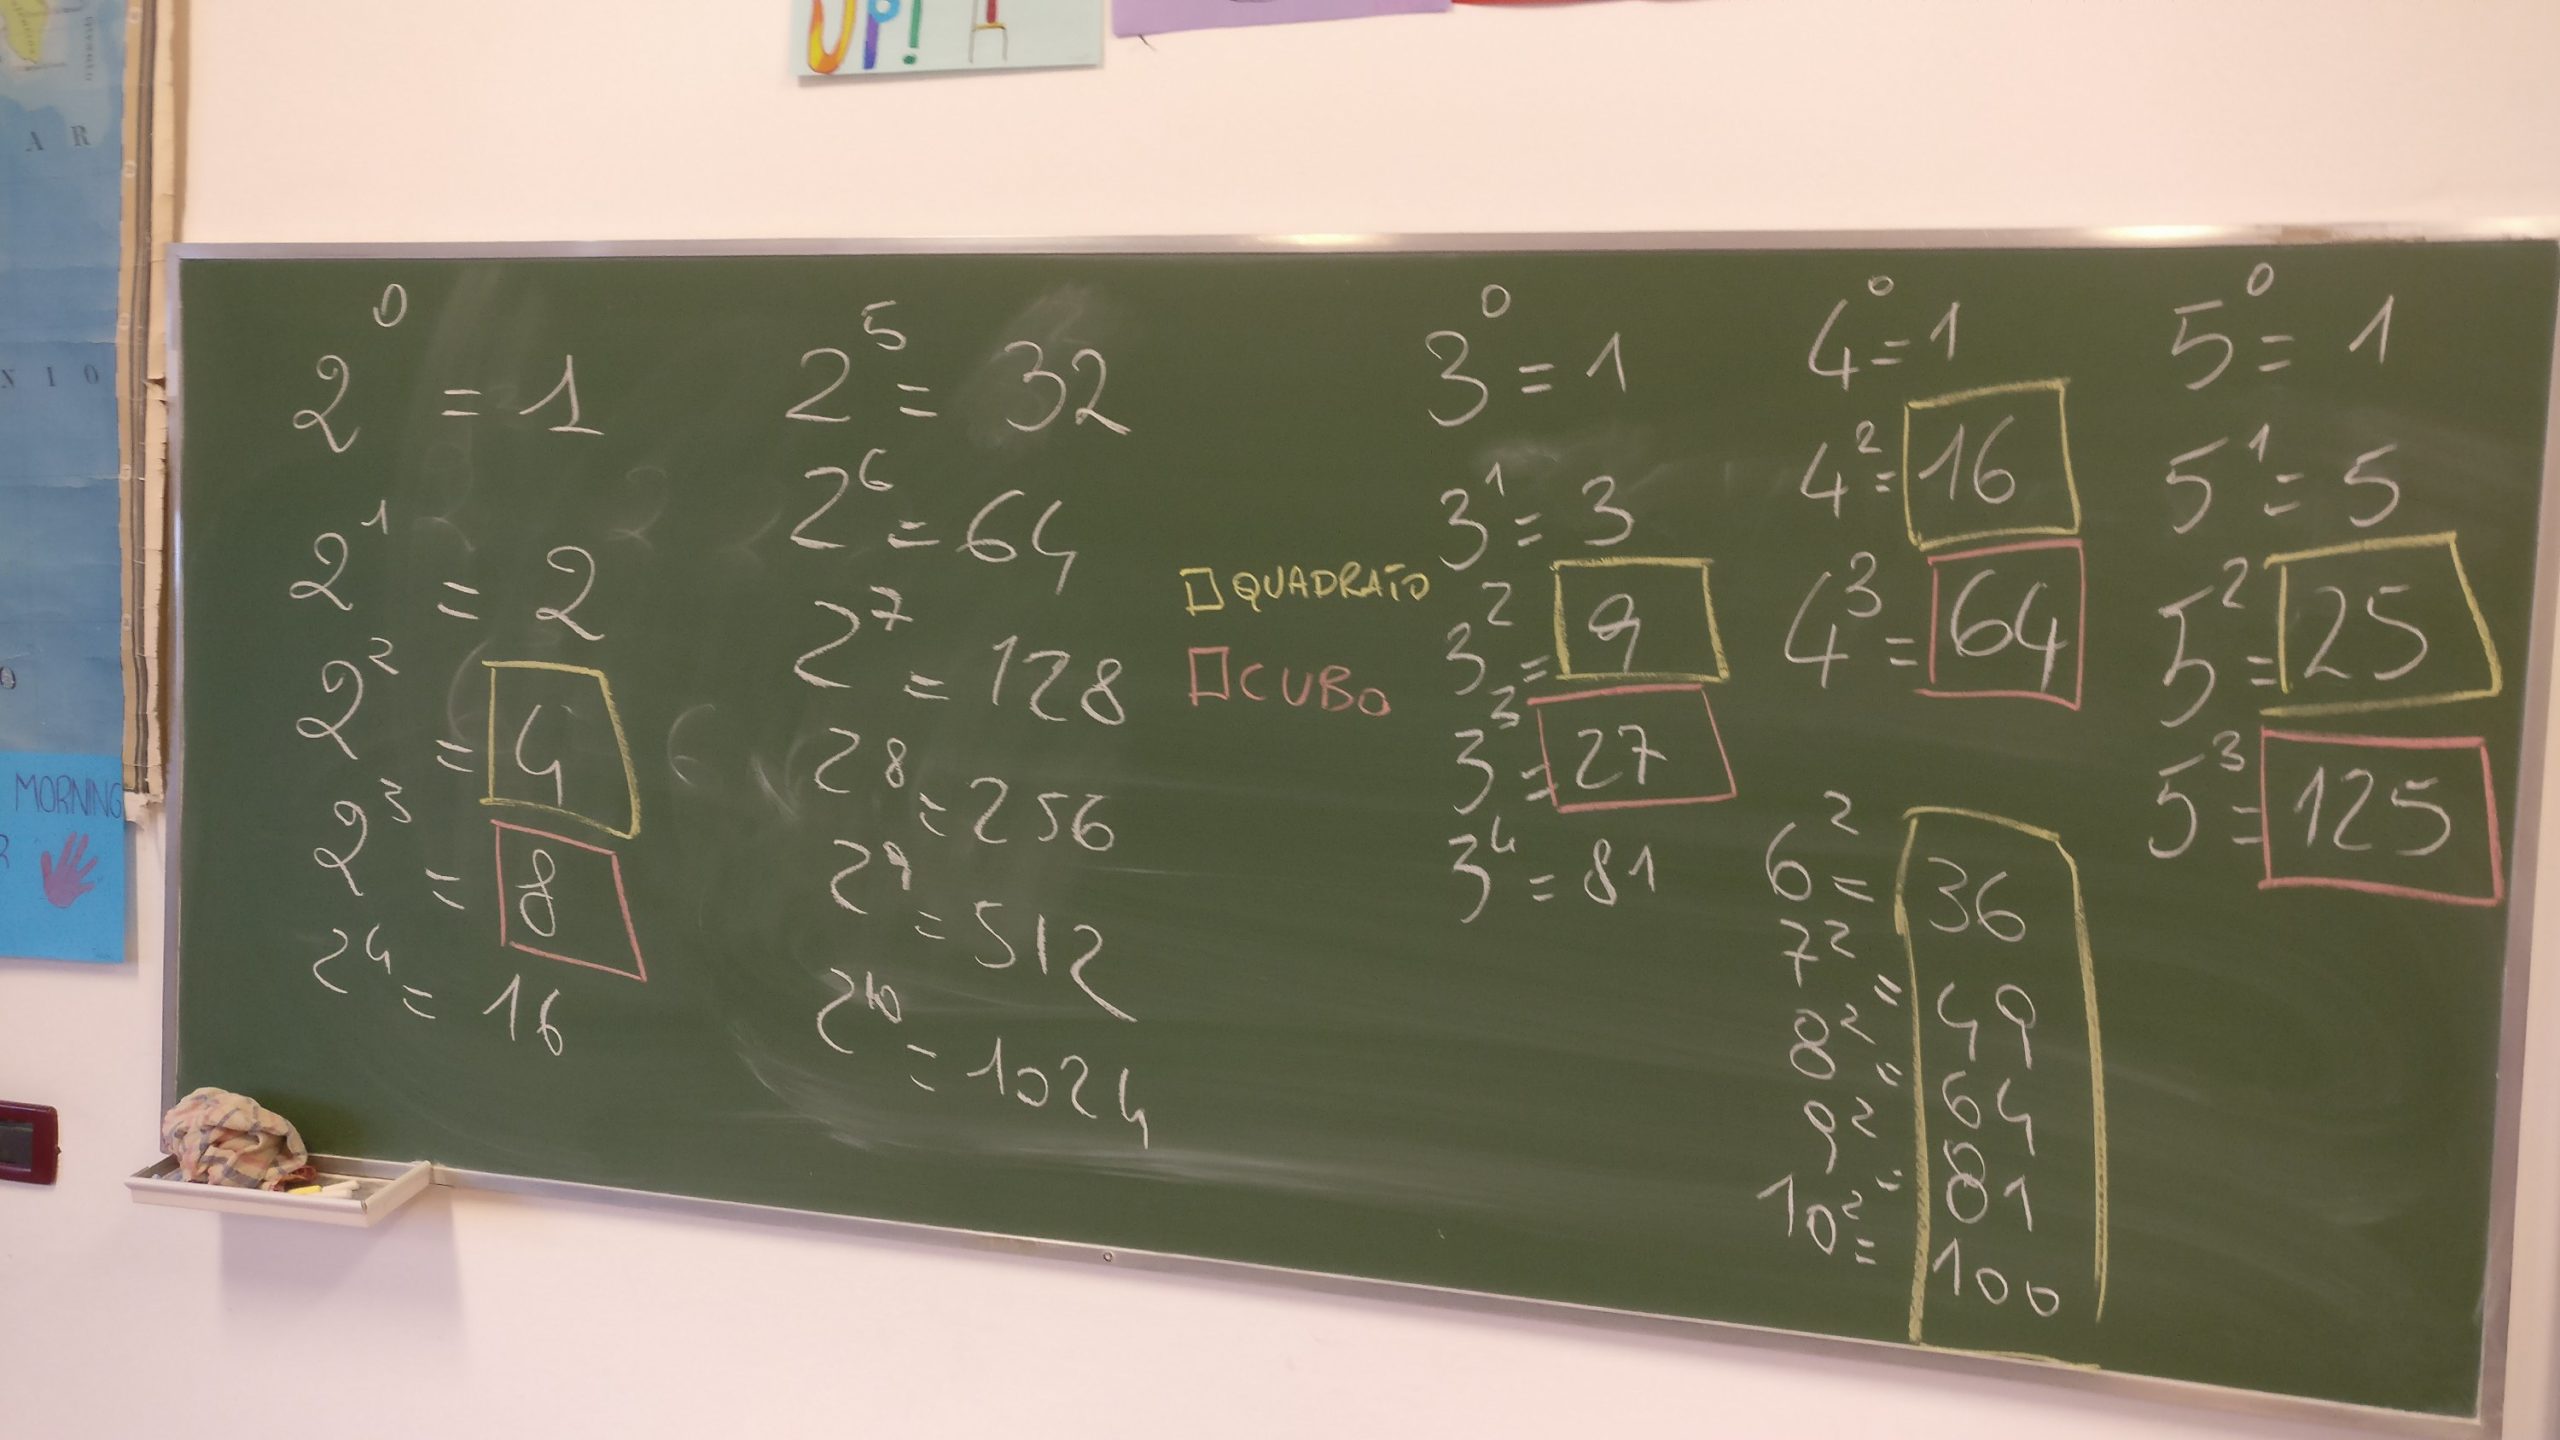 UP!
A R
N I O
O
MORNING
R
2⁰ = 1
2¹ = 2
2² = 4
2³ = 8
2⁴ = 16
2⁵ = 32
2⁶ = 64
2⁷ = 128
2⁸ = 256
2⁹ = 512
2¹⁰ = 1024
□ QUADRATO
□ CUBO
3⁰ = 1
3¹ = 3
3² = 9
3³ = 27
3⁴ = 81
4⁰ = 1
4² = 16
4³ = 64
6² = 36
7² = 49
8² = 64
9² = 81
10² = 100
5⁰ = 1
5¹ = 5
5² = 25
5³ = 125